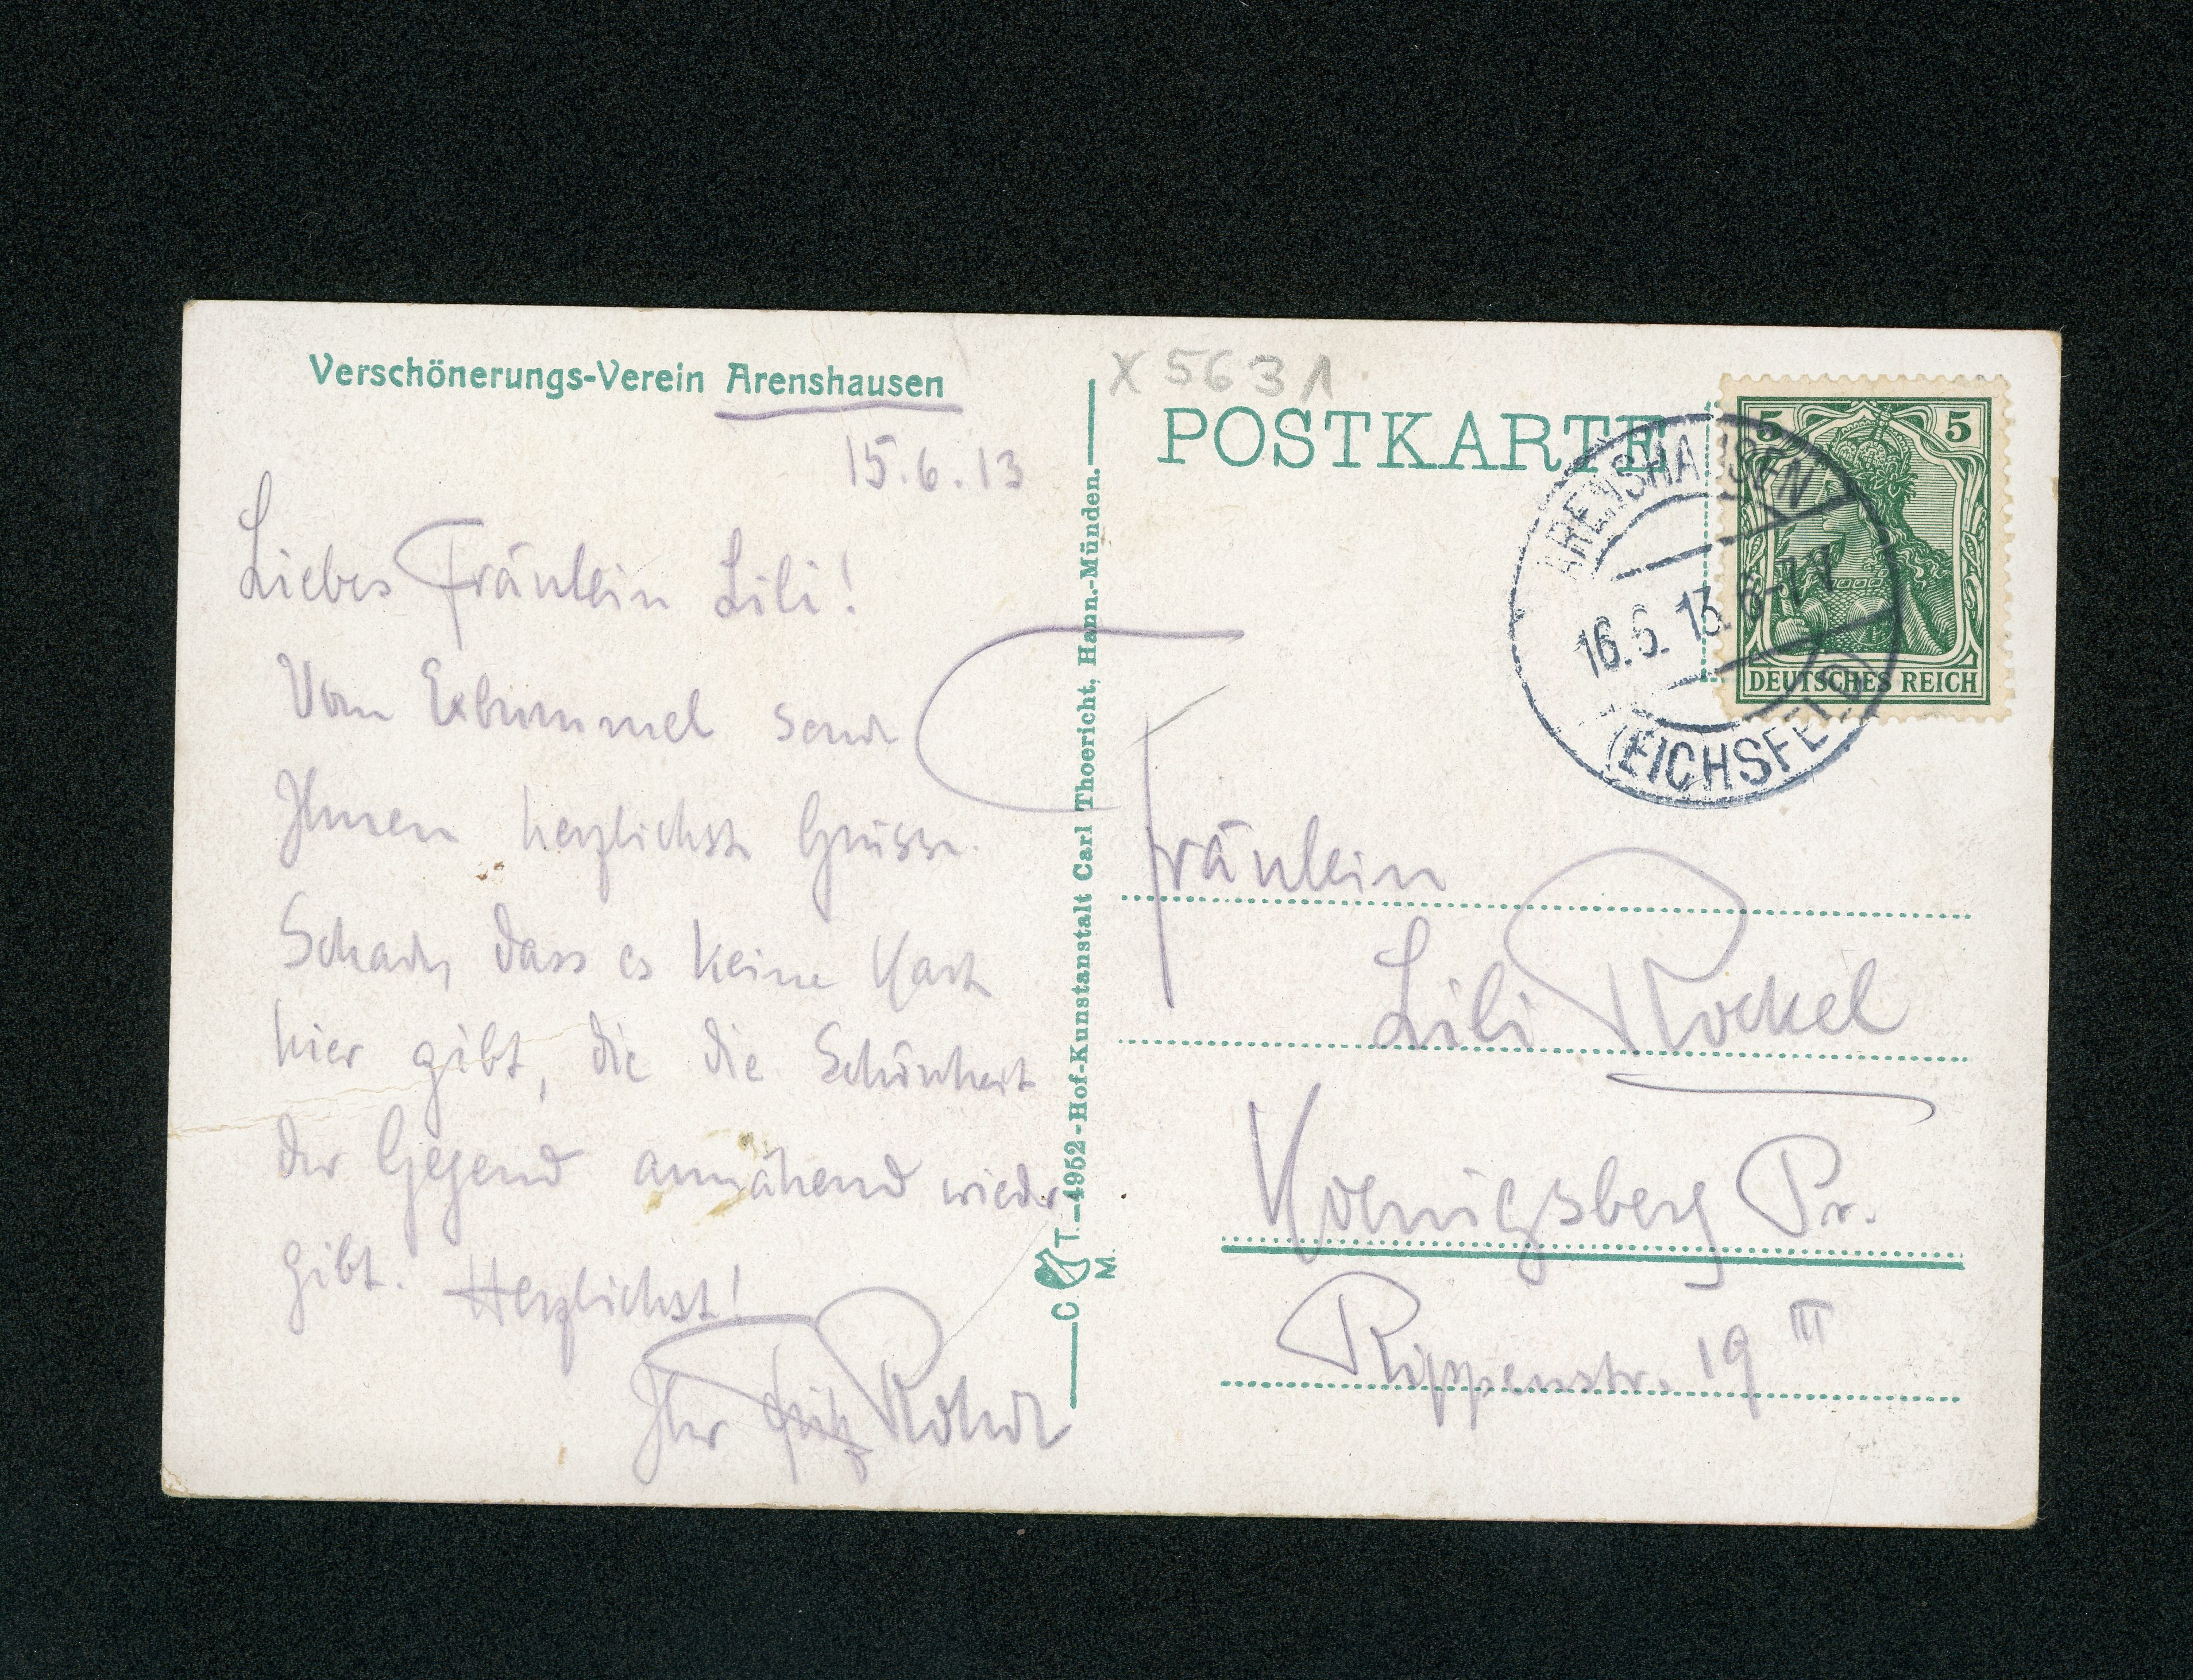 Verschönerungs-Verein Arenshausen
15.6.13
Liebes Fräulein Lili!
Vom Exbummel sende
Ihnen herzlichste Grüsse.
Schade, dass es keine Karte
hier gibt, die die Schönheit
der Gegend annähend wieder
gibt. Herzlichst!
Ihr Fritz
C. T. – 4952 - Hof-Kunstanstalt Carl Thoericht, Hann.-Münden.
M.
X 5631
POSTKARTE
5 5
DEUTSCHES REICH
ARENSHAUSEN
16.6.13. 6-7 V
(EICHSFELD)
Fräulein
Lili Rockel
Koenigsberg Pr.
Rippenstr. 19 III